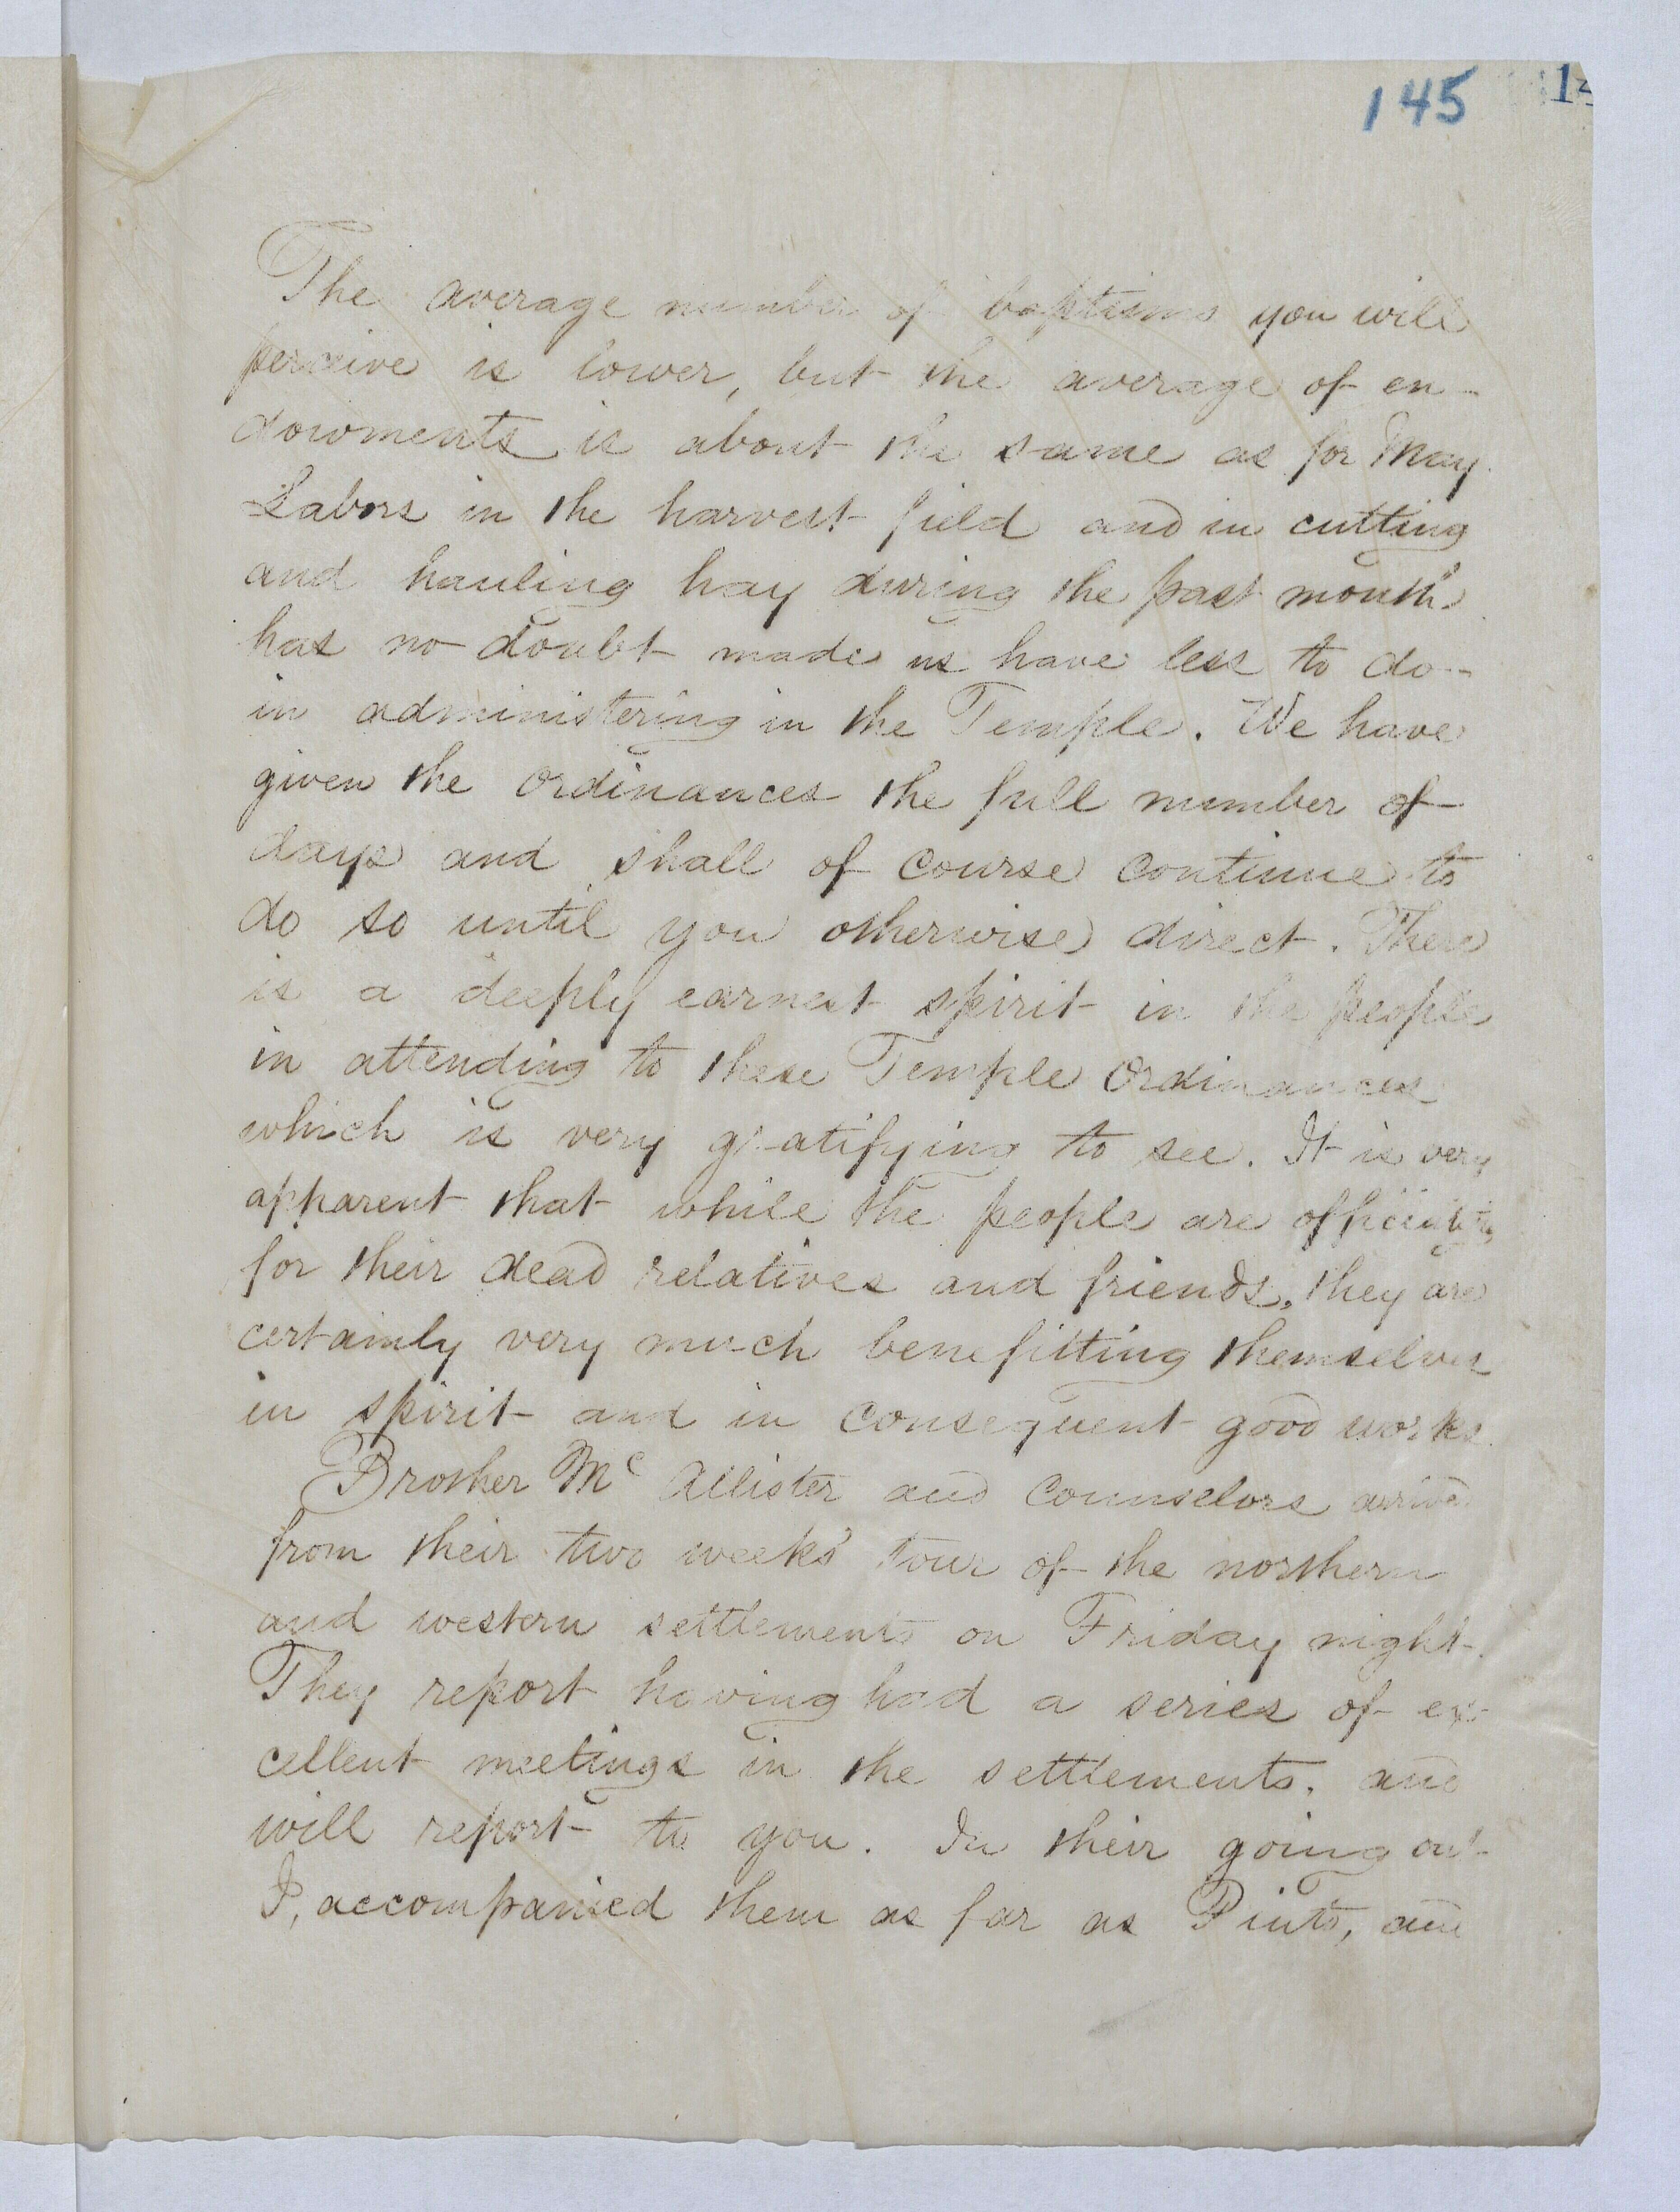 145
The average number of baptisms you will
perceive is lower, but the average of en-
dowments is about the same as for May.
Labors in the harvest field and in cutting
and hauling hay during the past month
has no doubt made us have less to do
in administering in the Temple. We have
given the Ordinances the full number of
days and shall of course continue to
do so until you otherwise direct. There
is a deeply earnest spirit in the people
in attending to these Temple Ordinances
which is very gratifying to see. It is very
apparent that while the people are officiating
for their dead relatives and friends, they are
certainly very much benefitting themselves
in spirit and in consequent good works.
Brother Mc Allister and Counselors arrived
from their two weeks' tour of the northern
and western settlements on Friday night.
They report having had a series of ex-
cellent meetings in the settlements, and
will report to you. In their going out
I, accompanied them as far as Pinto, and